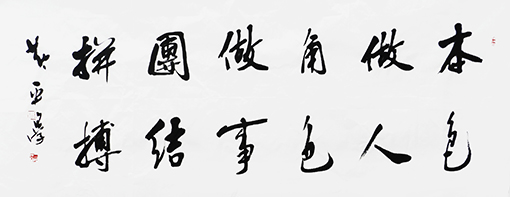 本色
做人
角色
做事
團結
拼搏